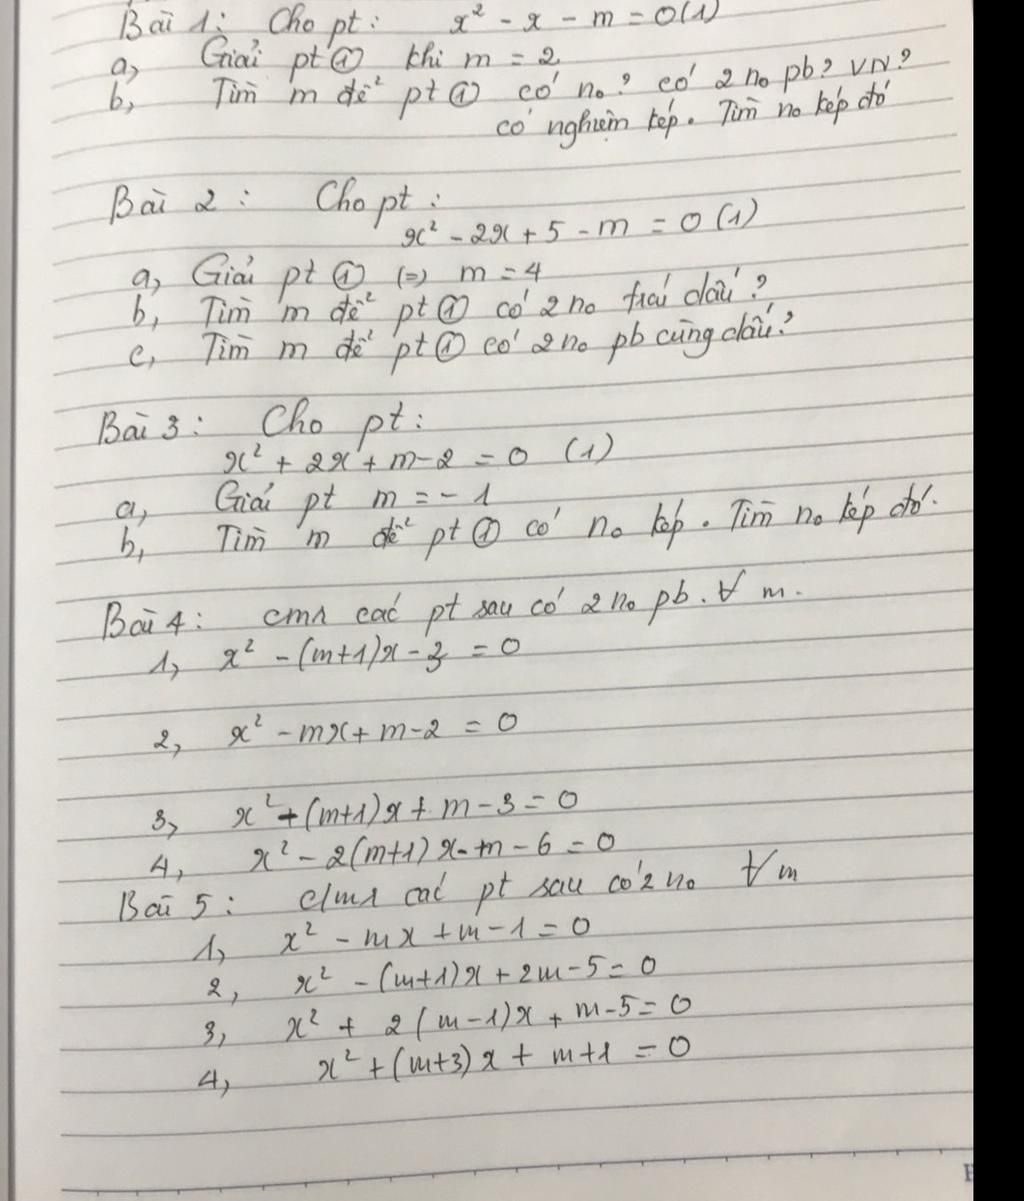 Bài 1: Cho pt: x² - x - m = 0 (1)
a, Giải pt ① khi m = 2
b, Tìm m để pt ① có no? có 2 no pb? VN?
có nghiệm kép. Tìm no kép đó
Bài 2: Cho pt:
x² - 2x + 5 - m = 0 (1)
a, Giải pt ① (=) m = 4
b, Tìm m để pt ① có 2 no trái dấu?
c, Tìm m để pt ① có 2 no pb cùng dấu?
Bài 3: Cho pt:
x² + 2x + m - 2 = 0 (1)
a, Giải pt m = - 1
b, Tìm m để pt ① có no kép. Tìm no kép đó.
Bài 4: cmr các pt sau có 2 no pb. ∀ m.
1, x² - (m+1)x - 3 = 0
2, x² - mx + m - 2 = 0
3, x² + (m+1)x + m - 3 = 0
4, x² - 2(m+1)x - m - 6 = 0
Bài 5: c/m1 các pt sau có 2 no ∀ m
1, x² - mx + m - 1 = 0
2, x² - (m+1)x + 2m - 5 = 0
3, x² + 2(m-1)x + m - 5 = 0
4, x² + (m+3)x + m + 1 = 0